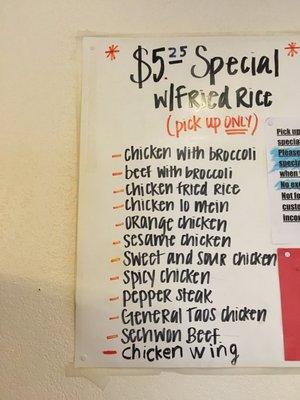 * $5.25 Special *
w/Fried Rice
(pick up ONLY)
- chicken with broccoli
- beef with broccoli
- chicken fried rice
- chicken lo mein
- orange chicken
- sesame chicken
- Sweet and sour chicken
- spicy chicken
- pepper steak
- General Taos chicken
- Sechwon Beef
- Chicken wing
Pick up
special
Please
special
when
No ex
Not fo
custo
incor